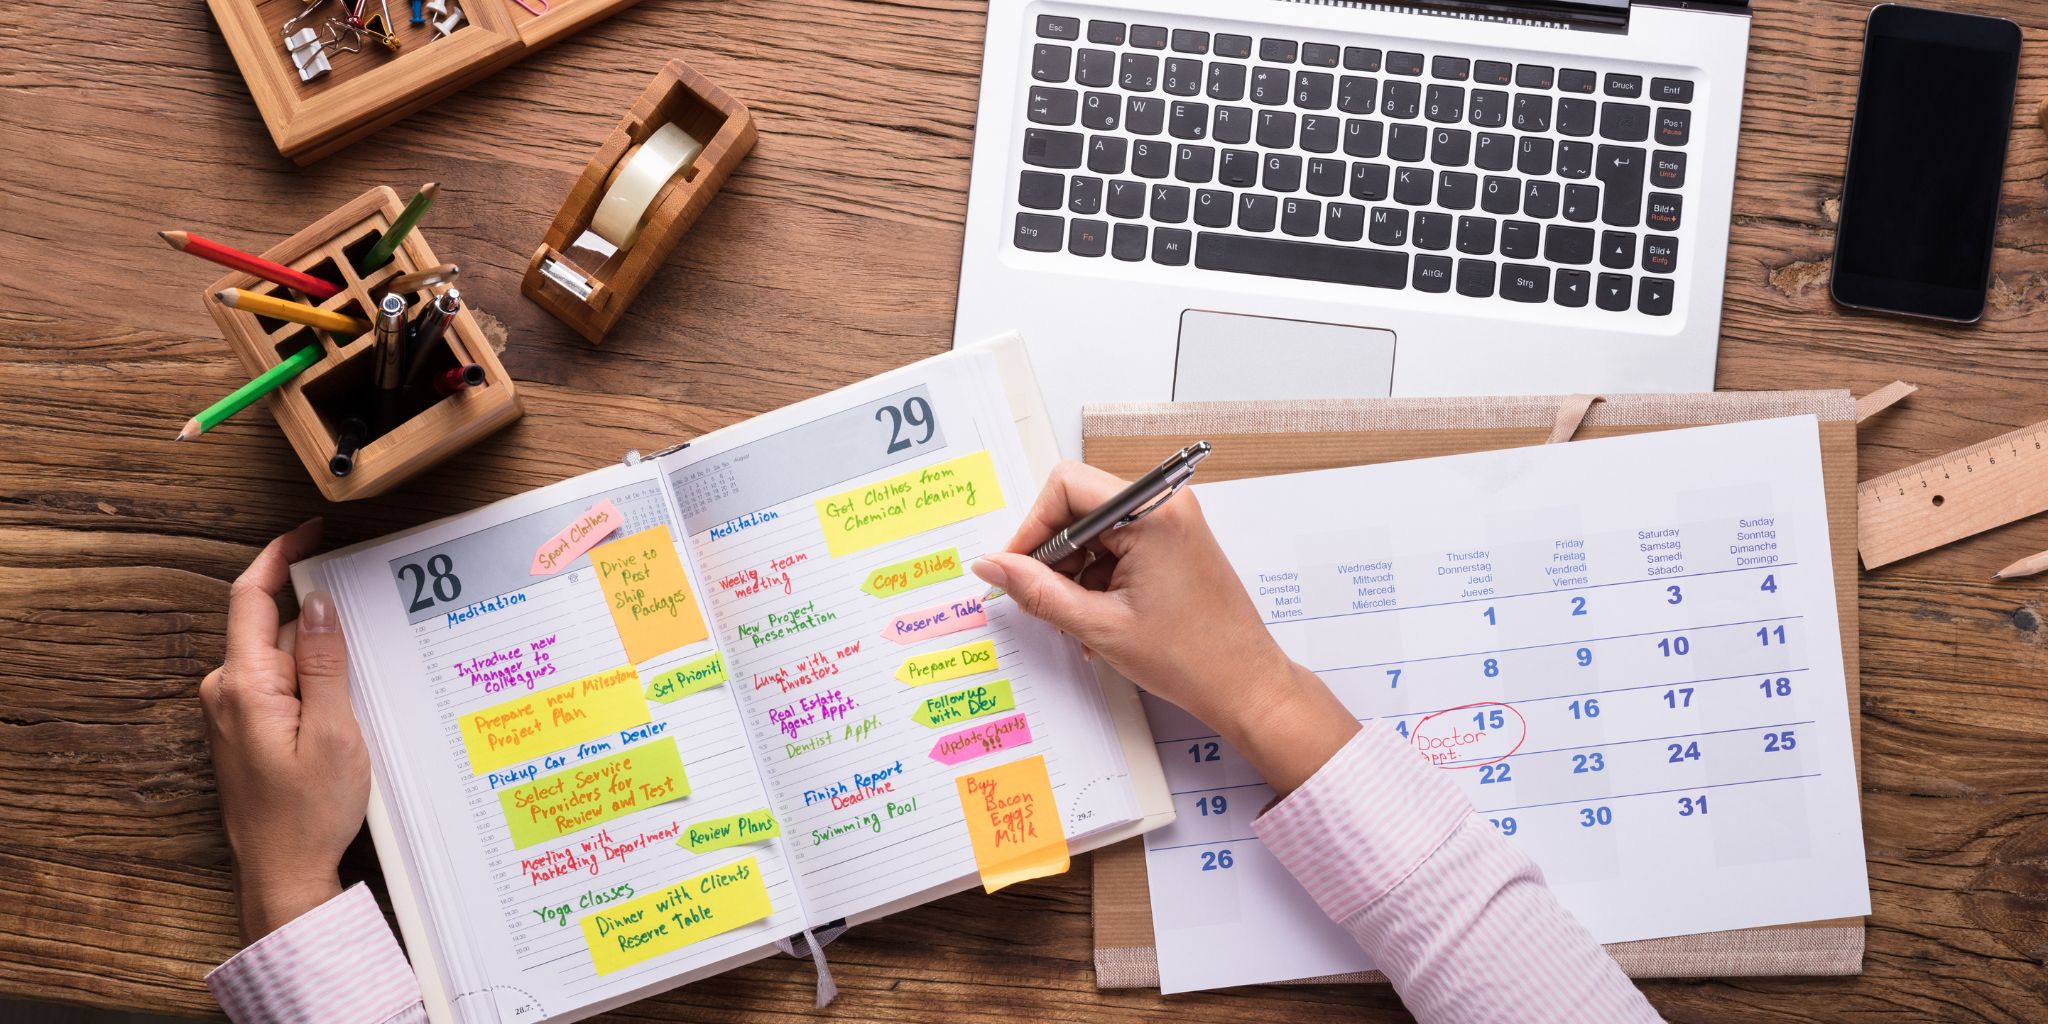 Esc Druck Entf
° ! 1 " 2 § 3 $ 4 5 & 6 / 7 ( 8 ) 9 = 0 ? ß
Q @ W E € R T Z U I O P Ü * + ~ Pos 1 Pause
A S D F G H J K L Ö Ä ' # Ende Untbr
> < Y X C V B N M µ ; , : . _ - Bild Rollen
Strg Fn Alt AltGr Strg Bild Einfg
28
Sport Clothes
Drive to
Post
Ship
Packages
Meditation
Introduce new
Manager to
Colleagues
Set Prioriti
Prepare new Milestone
Project Plan
Pickup Car from Dealer
Select Service
Providers for
Review and Test
Meeting with
Marketing Department
Review Plans
Yoga Classes
Dinner with Clients
Reserve Table
28.7.
August
29
Meditation
Get Clothes from
Chemical cleaning
Weekly team
meeting
Copy Slides
New Project
Presentation
Reserve Table
Lunch with new
investors
Prepare Docs
Real Estate
Agent Appt.
Follow up
with Dev
Dentist Appt.
Update Charts
!!!
Finish Report
Deadline
Swimming Pool
Buy
Bacon
Eggs
Milk
29.7.
Tuesday Wednesday Thursday Friday Saturday Sunday
Dienstag Mittwoch Donnerstag Freitag Samstag Sonntag
Mardi Mercredi Jeudi Vendredi Samedi Dimanche
Martes Miércoles Jueves Viernes Sábado Domingo
1 2 3 4
7 8 9 10 11
12 4 15 16 17 18
Doctor
Appt.
19 22 23 24 25
26 29 30 31
1 2 3 4 5 6 7 8